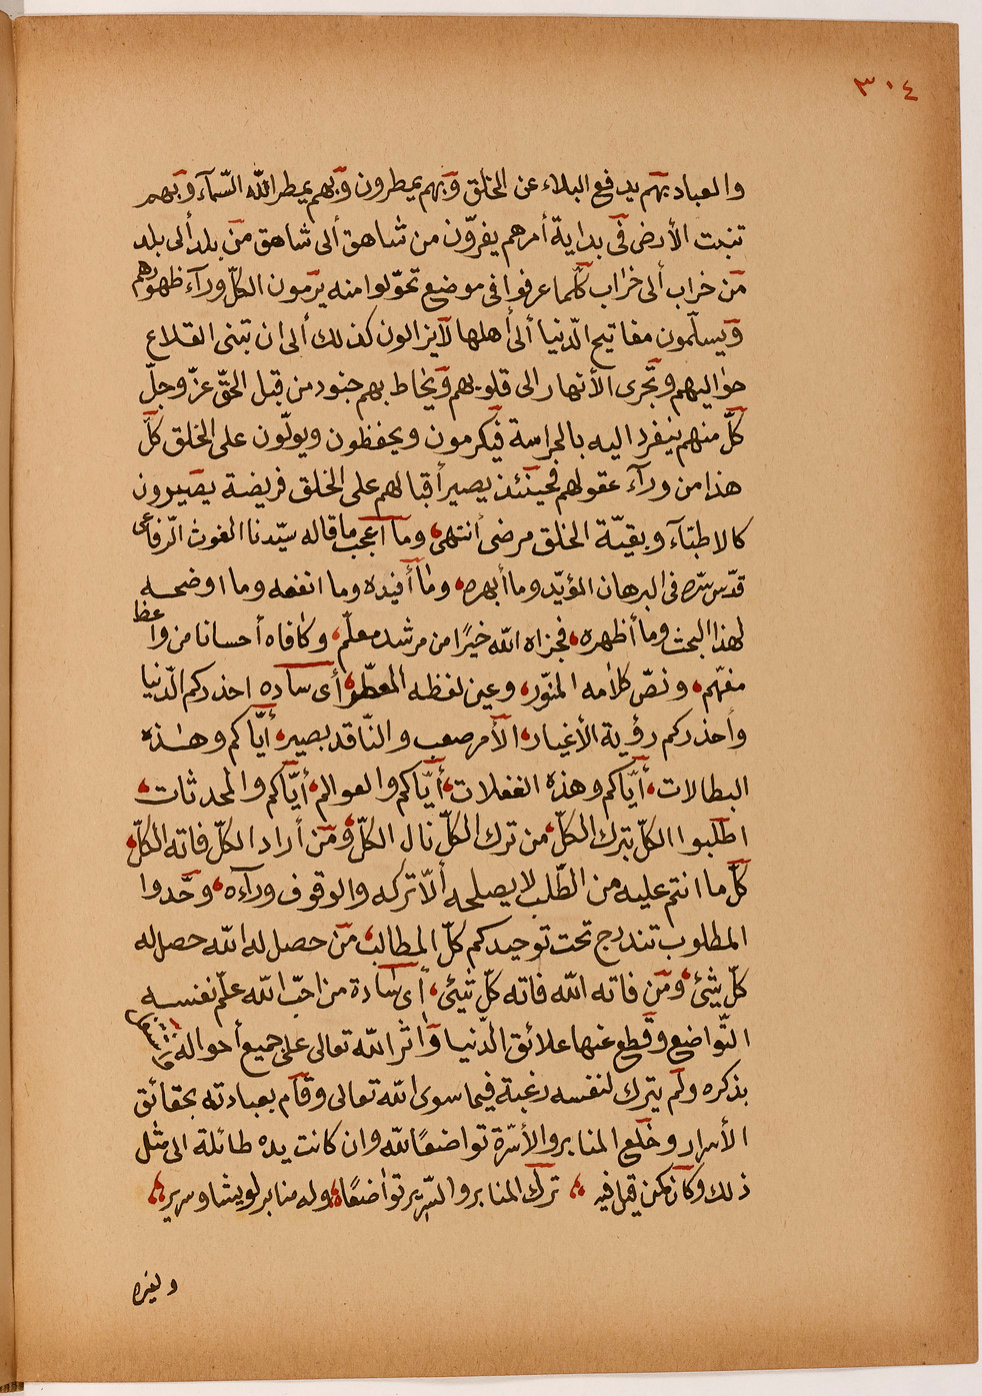 ٣٠٤
والعباد بهم يدفع البلاء عن الخلق وبهم يمطرون وبهم يمطر الله السّمآء وبهم
تنبت الأرض فى بداية أمرهم يفرّون من شاهق ألى شاهق من بلد ألى بلد
من خراب ألى خراب كلّما عرفوا فى موضع تحوّلوا منه يرّمون الكلّ ورآء ظهورهم
ويسلّمون مفاتيح الّدنيا ألى أهلها لايزالون كذلك ألى ان تبنى القلاع
حواليهم وتّجرى الأنهار الى قلوبهم ويحاط بهم جنود من قبل الحقّ عزّ وجلّ
كلّ منهم ينفرد اليه بالحراسة فيكرمون ويحفظون ويولّون على الخلق كلّ
هذا من ورآء عقولهم فحينئذ يصير أقبالهم على الخلق فريضة يصيرون
كالاطبّآء وبقيّة الخلق مرضى أنتهى، وما اعجب ما قاله سيّدنا الغوث الّرفاعى
قدّس سّره فى البرهان المؤيّد وما أبهره، وما أفيده وما انفعه وما اوضحه
لهذا البحث وما أظهره، فجزاه الله خيرًا من مرشد معلّم، وكافاه أحسانا من واعظ
مفهّم، ونصّ كلامه المنوّر، وعين لفظه المعطّر، أى ساده احذركم الّدنيا
وأحذركم رؤية الأغيار، الأمر صعب والنّاقد بصير، أيّاكم وهذه
البطالات، أيّاكم وهذه الغفلات، أيّاكم والعوالم، أيّاكم والمحدثات،
اطلبوا الكلّ بترك الكلّ، من ترك الكلّ نال الكلّ، ومن أراد الكلّ فاته الكلّ،
كلّ ما انتم عليه من الطّلب لا يصلحه ألاّ تركه والوقوف ورآءه، وحّدوا
المطلوب تندرج تحت توحيدكم كلّ المطالب، من حصل له الله حصل له
كلّ شئ، ومن فاته الله فاته كلّ شئ، أى سادة من احبّ الله علّم نفسه
التّواضع وقطع عنها علائق الّدنيا وآثر الله تعالى على جميع أحواله واشتغل
بذكره ولم يترك لنفسه رغبة فيما سوى الله تعالى وقام بعبادته بحقائق
الأسرار وخلع المنابر والأسّرة تواضعًا لله وان كانت يده طائلة الى مثل
ذلك وكان كمن قيل فيه ، ترك المنابر والسّرير تواضعًا، وله منابر لو يشا وسرير،
ولغيره